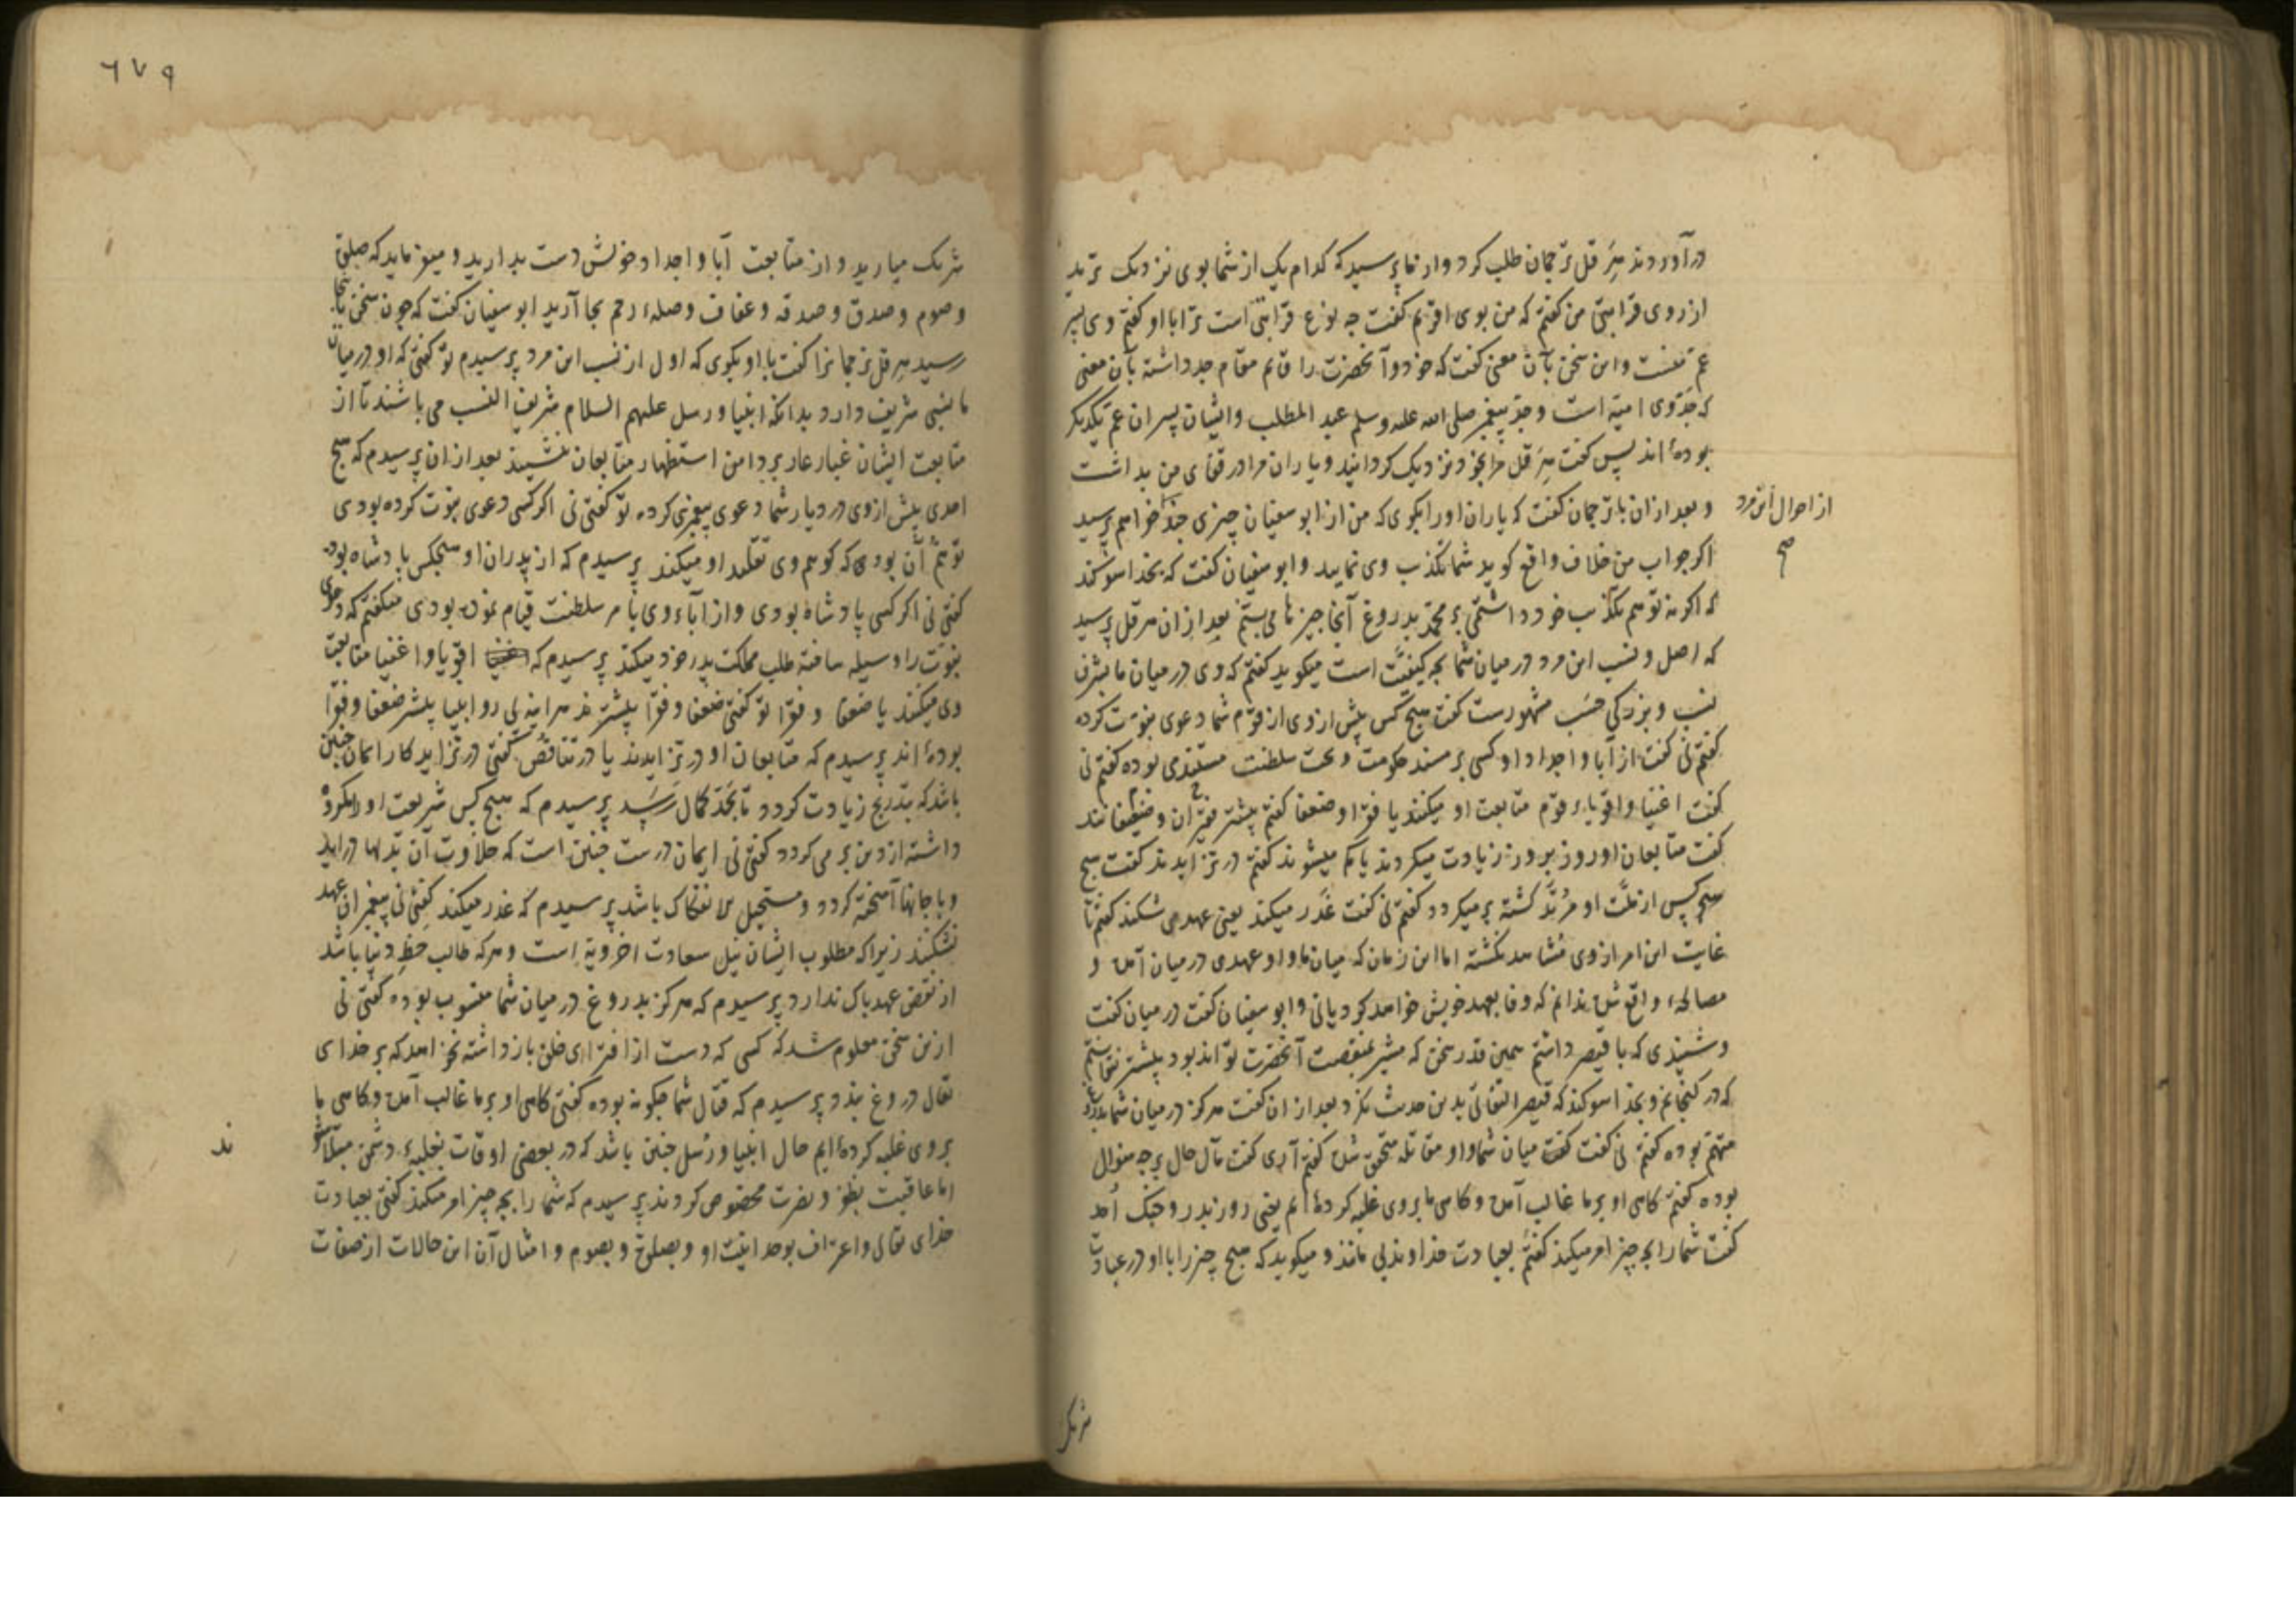 درآوردند هرقل ترجمان طلب کرد و از ما پرسید که کدام یک از شما بوی نزدیک ترید
از روی قرابتی من کفتم که من بوی اقربم کفت چه نوع قرابتی است ترا با او کفتم وی پسر
عم منست و این سخن بآن معنی کفت که خود و آنحضرت را قایم مقام جد داشته بآن معنی
که جد وی امیه است و جد پیغمبر صلی الله علیه وسلم عبد المطلب و ایشان پسران عم یکدیکر
بوده‌اند پس کفت هرقل مرا بخود نزدیک کردانید و یاران مرا در قفای من بداشت
و بعد از ان با ترجمان کفت که یاران او را بکوی که من از ابو سفیان چیزی چند خواهم پرسید
از احوال این مرد
صح
اکر جواب من خلاف واقع کوید شما تکذیب وی نمایید و ابو سفیان کفت که بخدا سوکند
که اکر نه توهم تکذیب خود داشتمی بر محمد بدروغ آنجا چیزها می بستم بعد از ان هرقل پرسید
که اصل و نسب این مرد در میان شما بچه کیفیت است میکوید کفتم که وی در میان ما بشرف
نسب و بزرکی حسب مشهورست کفت هیچ کس پیش از وی از قوم شما دعوی نبوت کرده
کفتم نی کفت از آبا و اجداد او کسی بر مسند حکومت و تخت سلطنت مستندی بوده کفتم نی
کفت اغنیا و اقویاء قوم متابعت او میکنند یا فقرا و ضعفا کفتم بیشتر فقیران و ضعیفانند
کفت متابعان او روز بروز زیادت میکردند یا کم میشوند کفتم در تزایدند کفت هیچ
هیچ کس از ملت او مرتد کشته بر میکردد کفتم نی کفت غدر میکند یعنی عهد می شکند کفتم تا
غایت این امر از وی مشاهد نکشته اما این زمان که میان ما و او عهدی در میان آمده و
مصالحه واقع شده ندانم که وفا بعهد خویش خواهد کرد یا نی و ابو سفیان کفت در میان کفت
و شنیدی که با قیصر داشتم همین قدر سخن که مشیر بمنقصت آنحضرت تواند بود بیشتر نتوانستم
که در کنجانم و بخدا سوکند که قیصر التفاتی بدین حدیث نکرد بعد از ان کفت هرکز در میان شما بدروغ
متهم بوده کفتم نی کفت کفت میان شما و او مقاتله متحقق شده کفتم آری کفت مآل حال بر چه منوال
بوده کفتم کاهی او بر ما غالب آمده و کاهی ما بر وی غلبه کرده‌ایم یعنی روز بدر و جنک احد
کفت شما را بچه چیز امر میکند کفتم بعبادت خداوند بی مانند و میکوید که هیچ چیز را با او در عبادت
شریک
٦٧٩
شریک میارید و از متابعت آبا و اجداد خویش دست بدارید و میفرماید که صلوة
و صوم و صدق و صدقه و عفاف و صلهء رحم بجا آرید ابو سفیان کفت که چون سخن باینجا
رسید هرقل ترجمانرا کفت با او بکوی که اول از نسب این مرد پرسیدم تو کفتی که او در میان
ما نسبی شریف دارد بدانکه انبیا و رسل علیهم السلام شریف النسب می باشند تا از
متابعت ایشان غبار عار بر دامن استظهار متابعان ننشیند بعد از ان پرسیدم که هیچ
احدی پیش از وی در دیار شما دعوی پیغمبری کرده تو کفتی نی اکر کسی دعوی نبوت کرده بودی
توهم آن بودی که کوهم وی تقلید او میکند پرسیدم که از پدران او هیچکس پادشاه بوده
کفتی نی اکر کسی پادشاه بودی و از آباء وی بامر سلطنت قیام نموده بودی میکفتم که دعوی
نبوت را وسیله ساخته طلب مملکت پدر خود میکند پرسیدم که اقویا و اغنیا متابعت
وی میکنند یا ضعفا و فقرا تو کفتی ضعفا و فقرا بیشترند هر اینه پی رو انبیا بیشتر ضعفا و فقرا
بوده‌اند پرسیدم که متابعان او در تزایدند یا در تناقص کفتی در تزاید کار ایمان چنین
باشد که بتدریج زیادت کردد تا بحد کمال رسد پرسیدم که هیچ کس شریعت او را مکروه
داشته از دین بر می کردد کفتی نی ایمان درست چنین است که حلاوت آن بدلها در آید
و با جانها آمیخته کردد و مستحیل الانفکاک باشد پرسیدم که غدر میکند کفتی نی پیغمبران عهد
نشکنند زیرا که مطلوب ایشان نیل سعادت اخرویه است و هر که طالب حظ دنیا باشد
از نقض عهد باک ندارد پرسیدم که هرکز بدروغ در میان شما منسوب بوده کفتی نی
ازین سخن معلوم شد که کسی که دست از افترای خلق باز داشته نخواهد که بر خدای
تعالی دروغ بندد پرسیدم که قتال شما چکونه بوده کفتی کاهی او بر ما غالب آمده و کاهی ما
بر وی غلبه کرده‌ایم حال انبیا و رسل چنین باشد که در بعضی اوقات بغلبهء دشمن مبتلا شو
ند
اما عاقبت بظفر و نصرت مخصوص کردند پرسیدم که شما را بچه چیز امر میکند کفتی بعبادت
خدای تعالی و اعتراف بوحدانیت او و بصلوة و بصوم و امثال آن این حالات از صفات